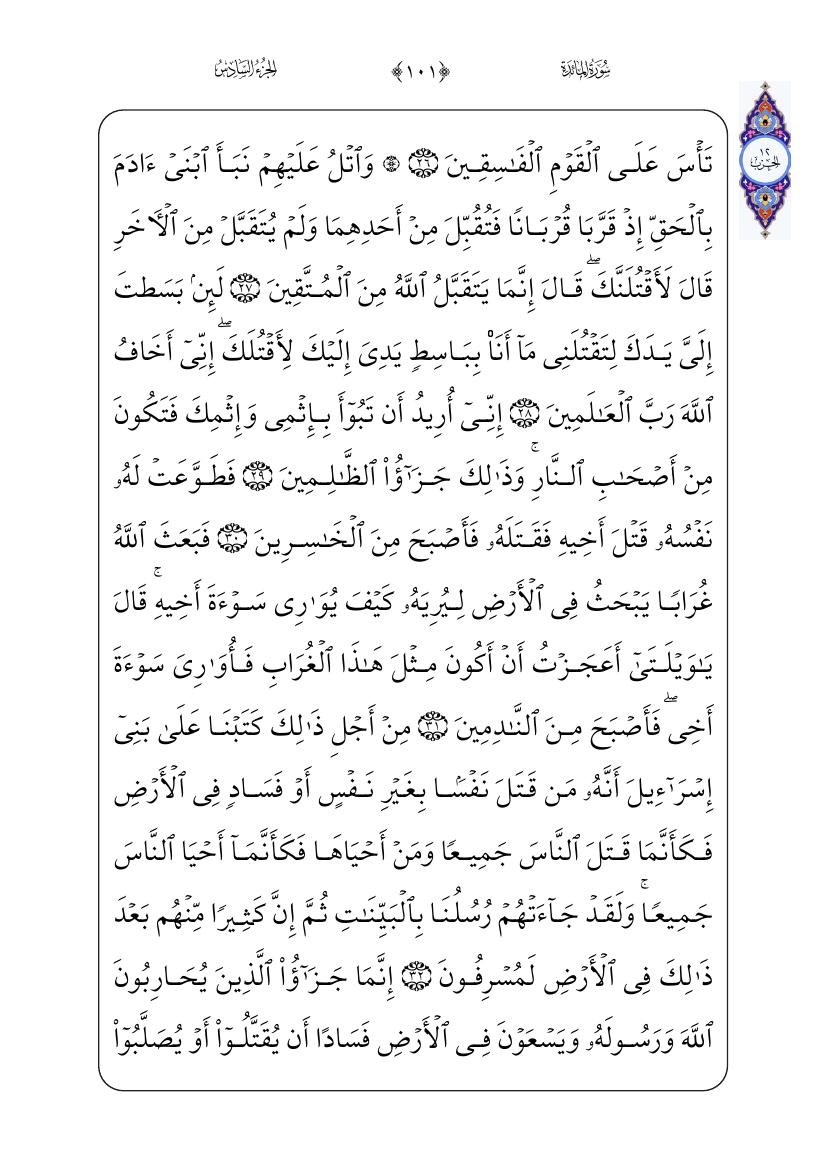 سُورَةُ المَائدَةِ ﴿١٠١﴾ الجُزءُ السَّادِسُ
١٢ الحِزب
تَأۡسَ عَلَى ٱلۡقَوۡمِ ٱلۡفَٰسِقِينَ ٢٦ ۞ وَٱتۡلُ عَلَيۡهِمۡ نَبَأَ ٱبۡنَيۡ ءَادَمَ
بِٱلۡحَقِّ إِذۡ قَرَّبَا قُرۡبَانٗا فَتُقُبِّلَ مِنۡ أَحَدِهِمَا وَلَمۡ يُتَقَبَّلۡ مِنَ ٱلۡأٓخَرِ
قَالَ لَأَقۡتُلَنَّكَۖ قَالَ إِنَّمَا يَتَقَبَّلُ ٱللَّهُ مِنَ ٱلۡمُتَّقِينَ ٢٧ لَئِنۢ بَسَطتَ
إِلَيَّ يَدَكَ لِتَقۡتُلَنِي مَآ أَنَا۠ بِبَاسِطٖ يَدِيَ إِلَيۡكَ لِأَقۡتُلَكَۖ إِنِّيٓ أَخَافُ
ٱللَّهَ رَبَّ ٱلۡعَٰلَمِينَ ٢٨ إِنِّيٓ أُرِيدُ أَن تَبُوٓأَ بِإِثۡمِي وَإِثۡمِكَ فَتَكُونَ
مِنۡ أَصۡحَٰبِ ٱلنَّارِۚ وَذَٰلِكَ جَزَٰٓؤُاْ ٱلظَّٰلِمِينَ ٢٩ فَطَوَّعَتۡ لَهُۥ
نَفۡسُهُۥ قَتۡلَ أَخِيهِ فَقَتَلَهُۥ فَأَصۡبَحَ مِنَ ٱلۡخَٰسِرِينَ ٣٠ فَبَعَثَ ٱللَّهُ
غُرَابٗا يَبۡحَثُ فِي ٱلۡأَرۡضِ لِيُرِيَهُۥ كَيۡفَ يُوَٰرِي سَوۡءَةَ أَخِيهِۚ قَالَ
يَٰوَيۡلَتَىٰٓ أَعَجَزۡتُ أَنۡ أَكُونَ مِثۡلَ هَٰذَا ٱلۡغُرَابِ فَأُوَٰرِيَ سَوۡءَةَ
أَخِيۖ فَأَصۡبَحَ مِنَ ٱلنَّٰدِمِينَ ٣١ مِنۡ أَجۡلِ ذَٰلِكَ كَتَبۡنَا عَلَىٰ بَنِيٓ
إِسۡرَٰٓءِيلَ أَنَّهُۥ مَن قَتَلَ نَفۡسَۢا بِغَيۡرِ نَفۡسٍ أَوۡ فَسَادٖ فِي ٱلۡأَرۡضِ
فَكَأَنَّمَا قَتَلَ ٱلنَّاسَ جَمِيعٗا وَمَنۡ أَحۡيَاهَا فَكَأَنَّمَآ أَحۡيَا ٱلنَّاسَ
جَمِيعٗاۚ وَلَقَدۡ جَآءَتۡهُمۡ رُسُلُنَا بِٱلۡبَيِّنَٰتِ ثُمَّ إِنَّ كَثِيرٗا مِّنۡهُم بَعۡدَ
ذَٰلِكَ فِي ٱلۡأَرۡضِ لَمُسۡرِفُونَ ٣٢ إِنَّمَا جَزَٰٓؤُاْ ٱلَّذِينَ يُحَارِبُونَ
ٱللَّهَ وَرَسُولَهُۥ وَيَسۡعَوۡنَ فِي ٱلۡأَرۡضِ فَسَادًا أَن يُقَتَّلُوٓاْ أَوۡ يُصَلَّبُوٓاْ